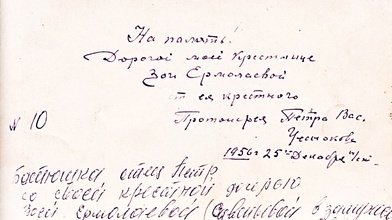 На память.
Дорогой моей крестнице
Зои Ермолаевой
от ея крестного
Протоиерея Петра Вас.
Чеснокова
N 10
1956 г 25 Декабря
Батюшка отец Петр
со своей крестной дочерью
Зоей Ермолаевой (в замуж